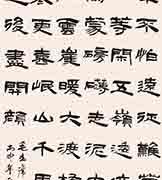 不怕遠征難
等閑五嶺逶迤
蒙磅礴走泥丸
雲崖暖大渡
更喜岷山千
後盡開顏